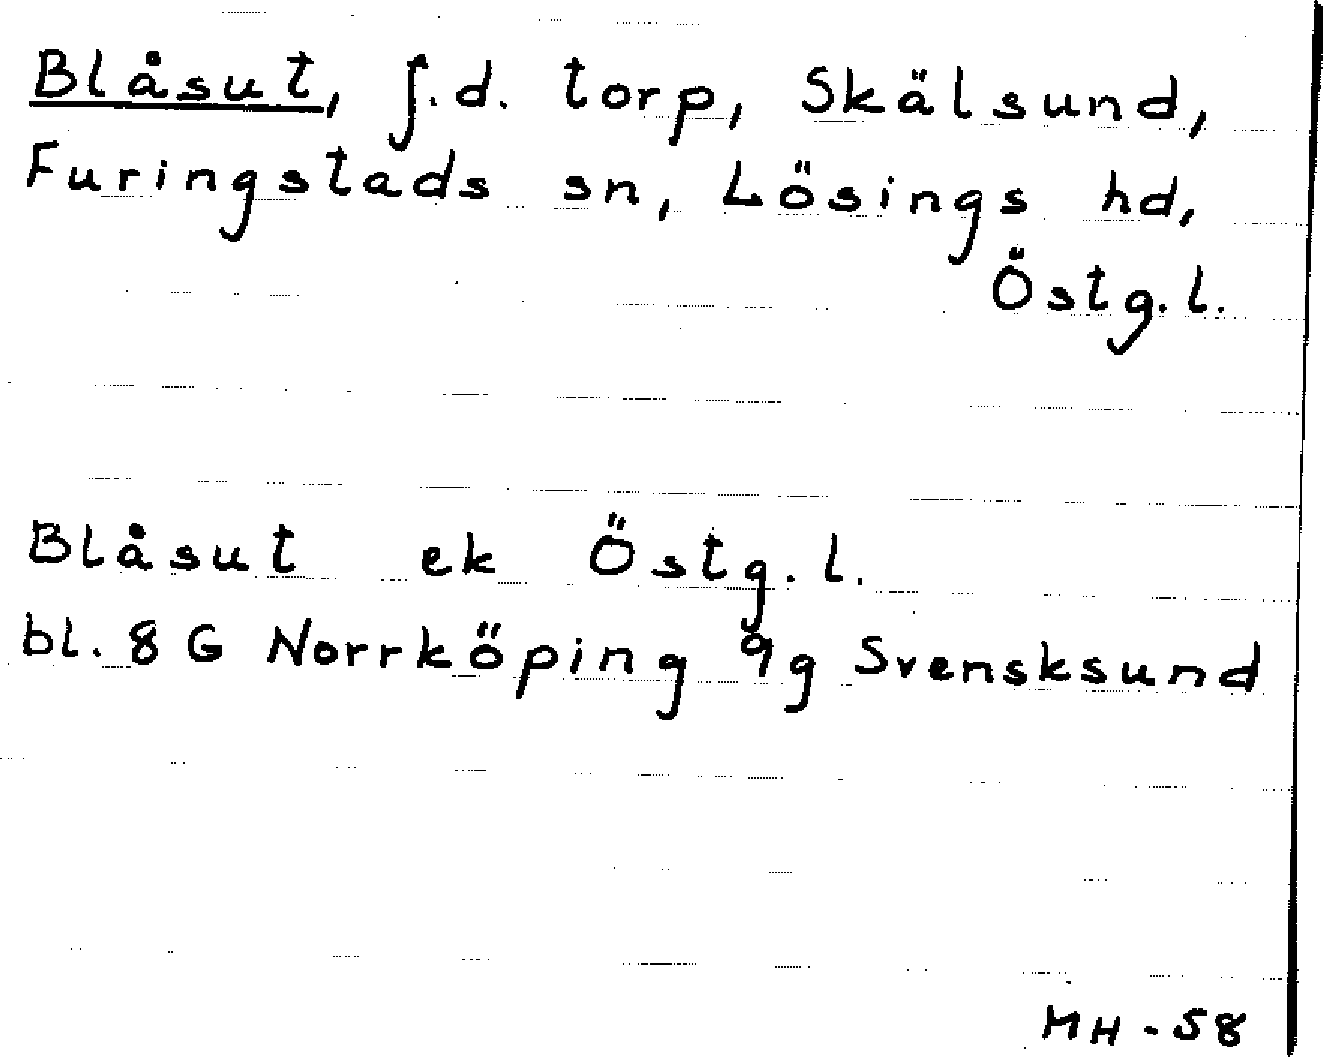 Blåsut, f.d. torp, Skälsund,
Furingstads sn, Lösings hd,
Östg.l.
Blåsut ek Östg.l.
bl. 8 G Norrköping 9g Svensksund
MH - 58